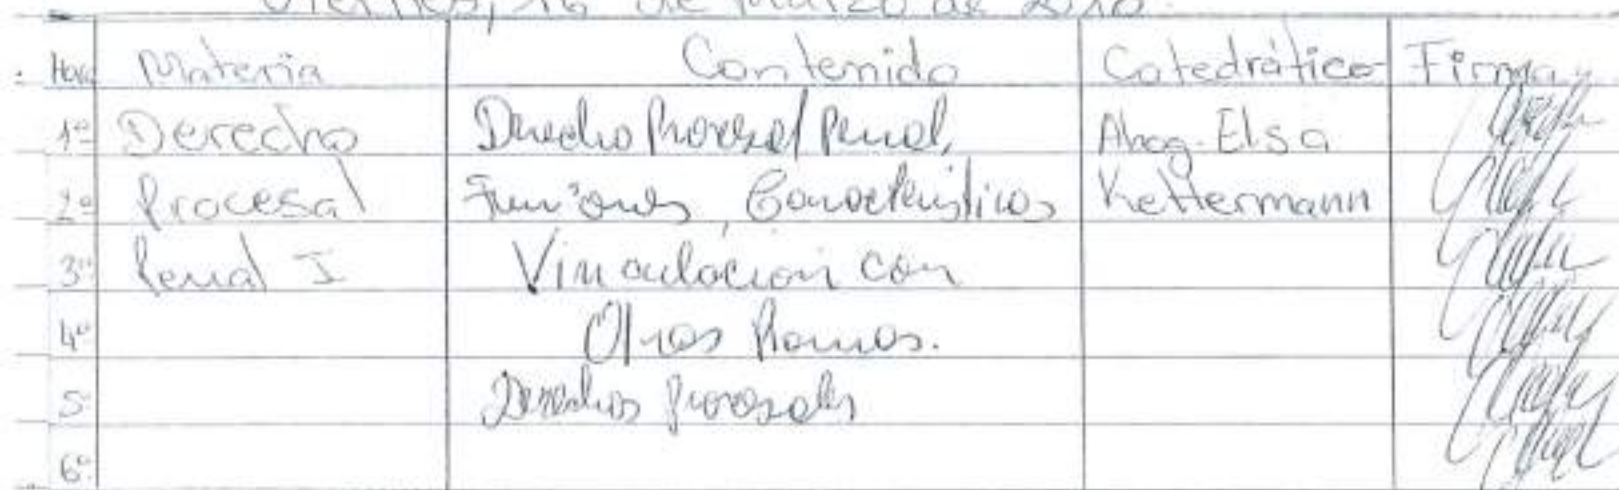 Viernes, 16 de Marzo de 2018.
Hora Materia Contenido Catedrático Firma
1º Derecho Derecho Procesal Penal, Abog. Elsa
2º Procesal Funciones, Características Kettermann
3º Penal I Vinculación con
4º Otras Ramas.
5º Derechos procesales
6º